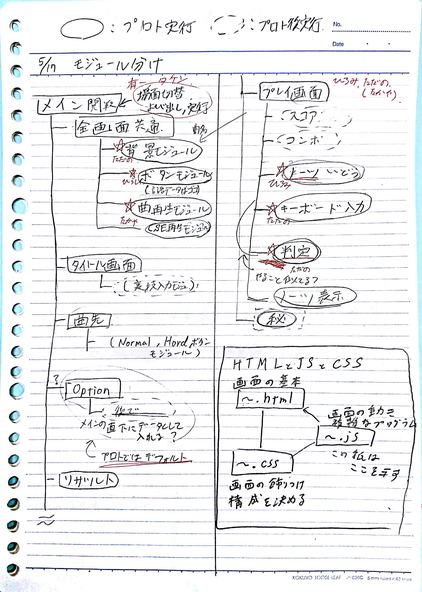 ：プロト実行　：プロト後実行
No.
Date
5/17 モジュール分け
メイン関数
場面切替
よび出し,実行
全画面共通
背景モジュール
ただの
ボタンモジュール
ひろみ
曲再生モジュール
(SE再生モジュール)
タイトル画面
曲先
(Normal, Hardボタン
モジュール)
?
Option
メインの画面下にデータとして
入れる？
プロトではデフォルト
リザルト
プレイ画面
ひろみ,ただの,
スコア
コンボ
ノーツいどう
ひろみ
キーボード入力
ただの
判定
ただの
やること似てる？
ノーツ表示
秘
HTMLとJSとCSS
画面の基本
～.html
画面の動き
複雑なプログラム
～.js
この紙は
ここを示す
～.css
画面の飾りつけ
構成を決める
KOKUYO LOOSE-LEAF